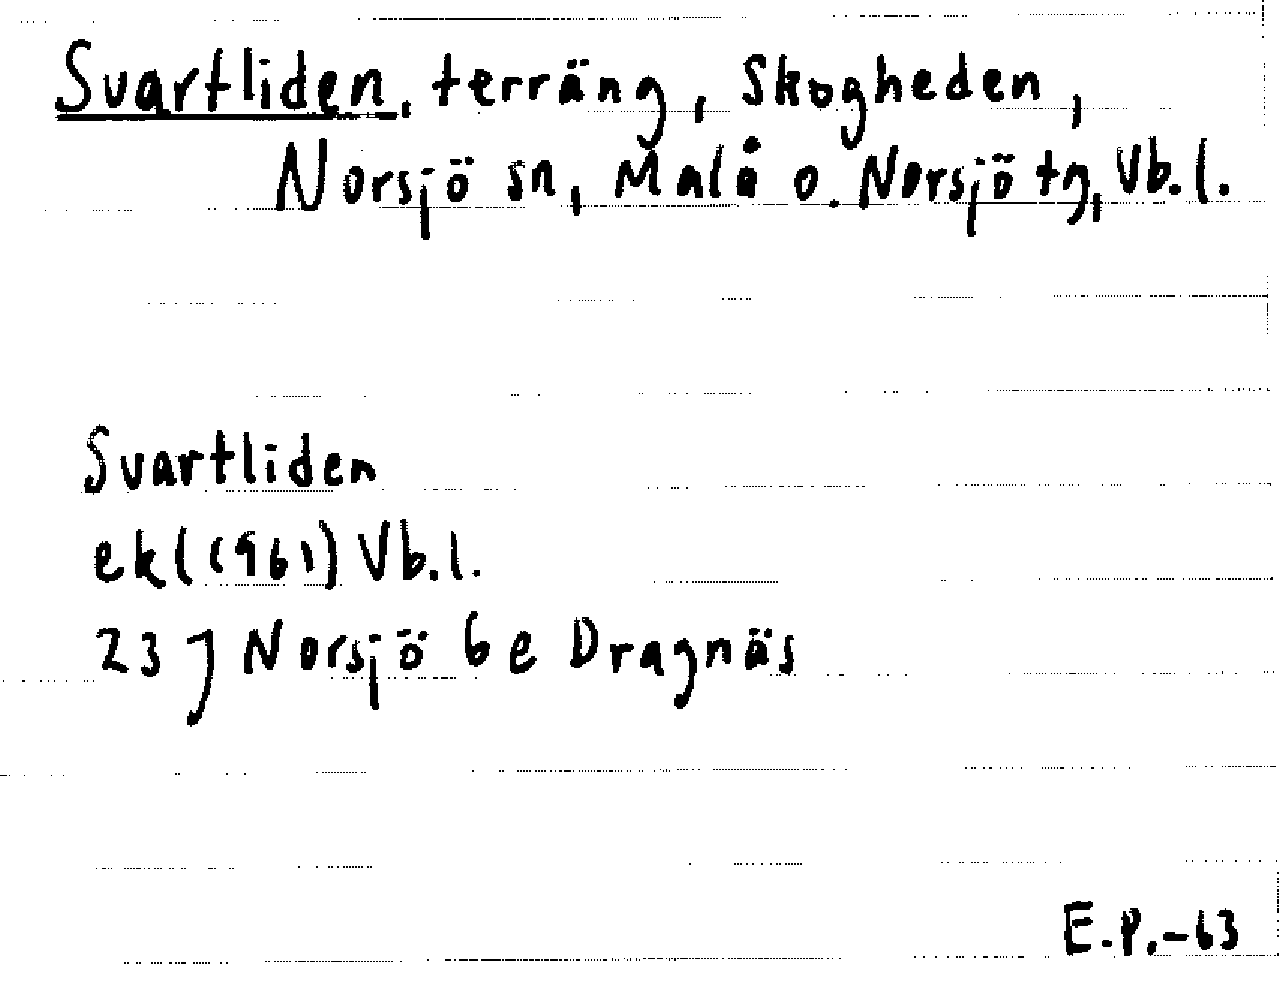 Svartliden, terräng, Skogheden,
Norsjö sn, Malå o. Norsjö tg, Vb.l.
Svartliden
ek (1961) Vb.l.
23 J Norsjö 6 e Dragnäs
E.P.-63